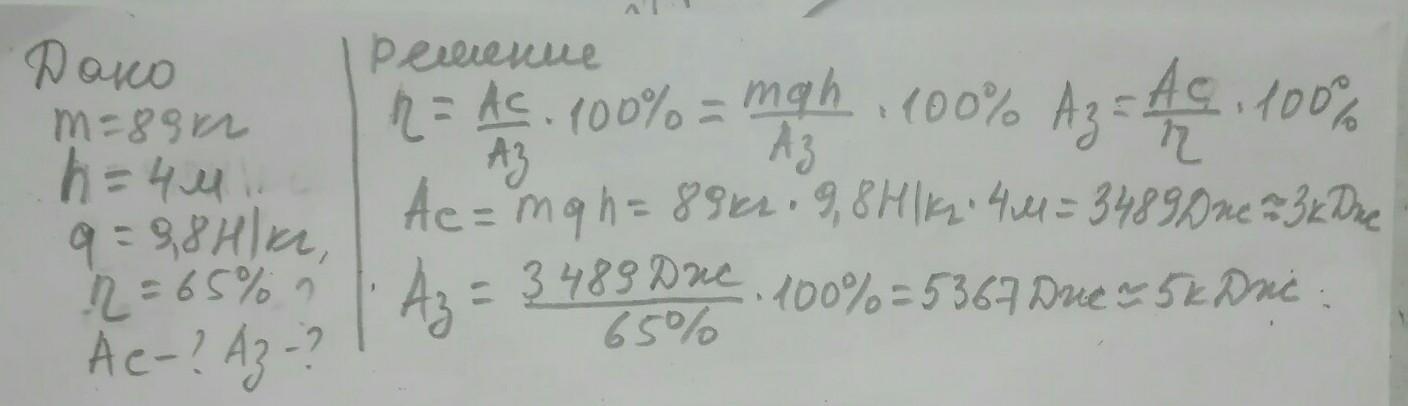 Дано
m=89кг
h=4м
g=9,8Н/кг,
η=65%
Ac-? Aз-?
Решение
η = Ac/Aз · 100% = mgh/Aз · 100% Aз = Ac/η · 100%
Ac = mgh = 89кг · 9,8Н/кг · 4м = 3489Дж ≈ 3кДж
Aз = 3489Дж/65% · 100% = 5367Дж ≈ 5кДж